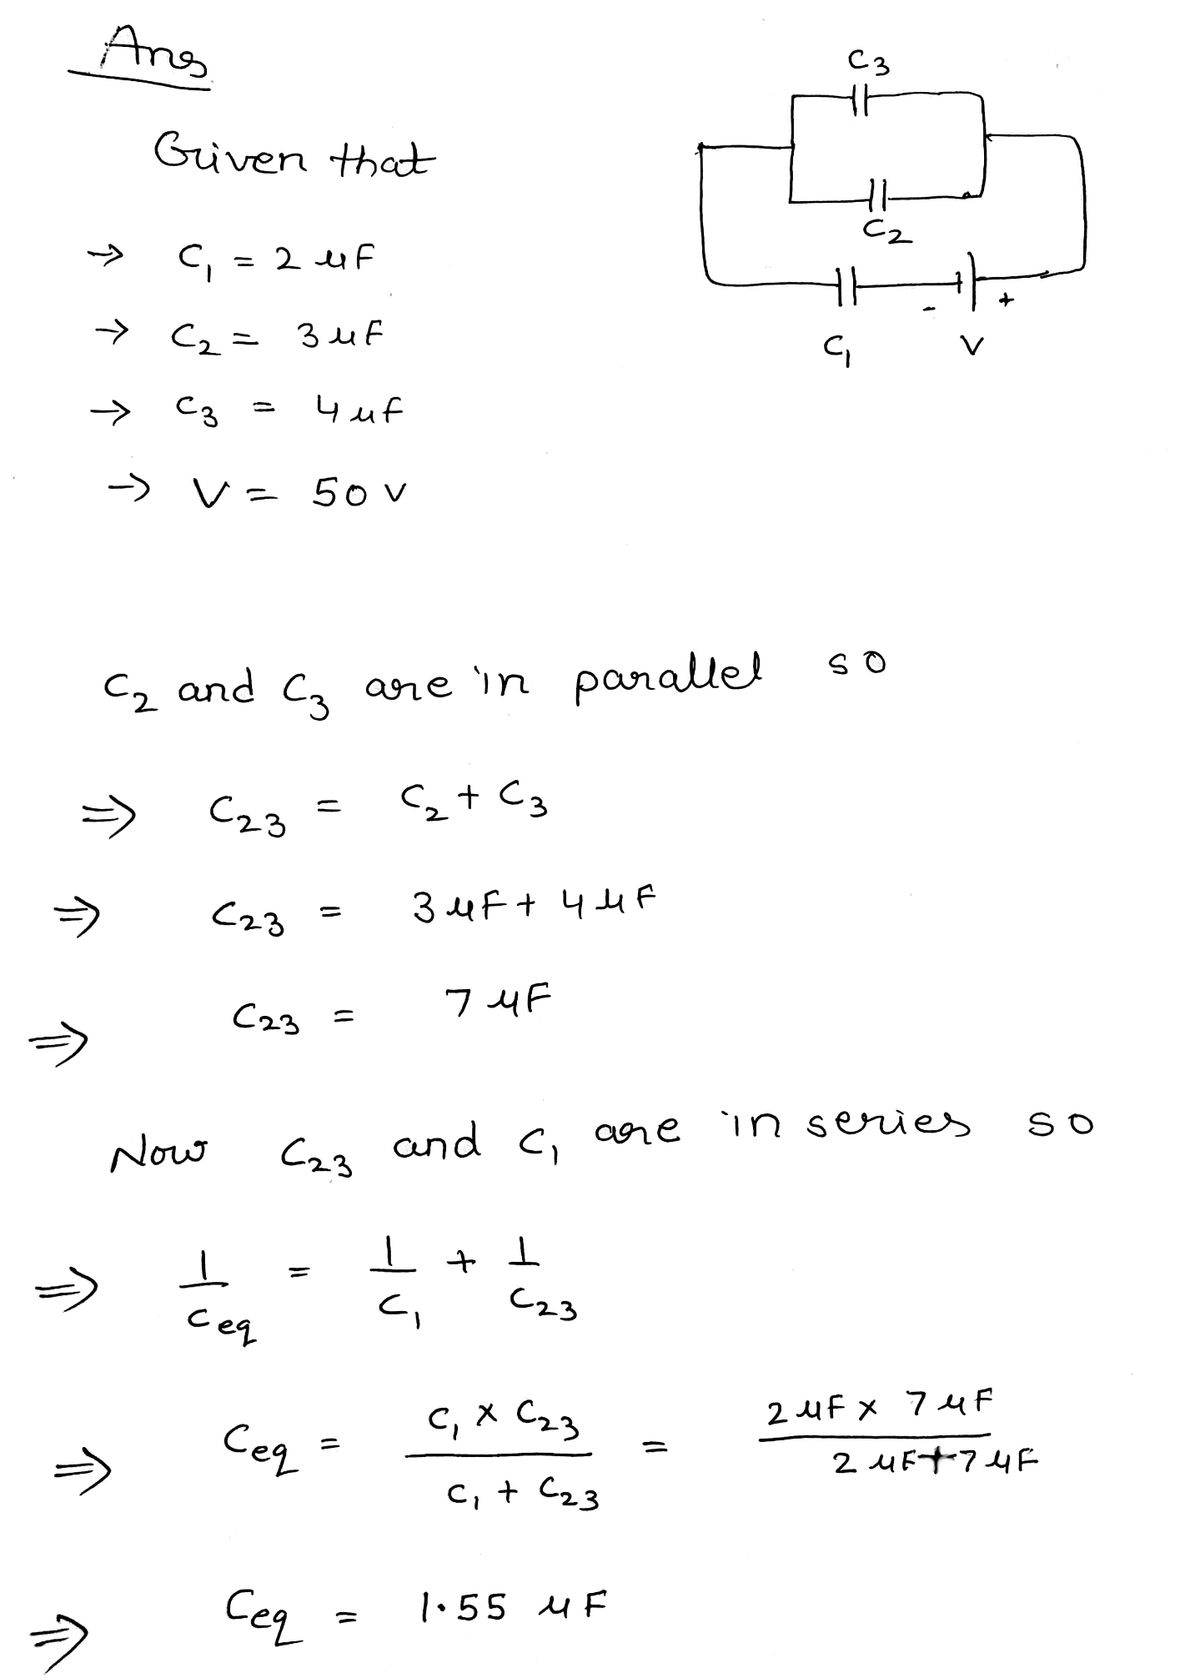 Ans
C3
Given that
C2
→ C1 = 2 μF
- +
C1 V
→ C2 = 3 μF
→ C3 = 4 μf
→ V = 50 v
C2 and C3 are in parallel so
⇒ C23 = C2 + C3
⇒ C23 = 3 μF + 4 μF
⇒ C23 = 7 μF
Now C23 and C1 are in series so
⇒ 1/Ceq = 1/C1 + 1/C23
⇒ Ceq = C1 × C23 / C1 + C23 = 2 μF × 7 μF / 2 μF + 7 μF
⇒ Ceq = 1.55 μF